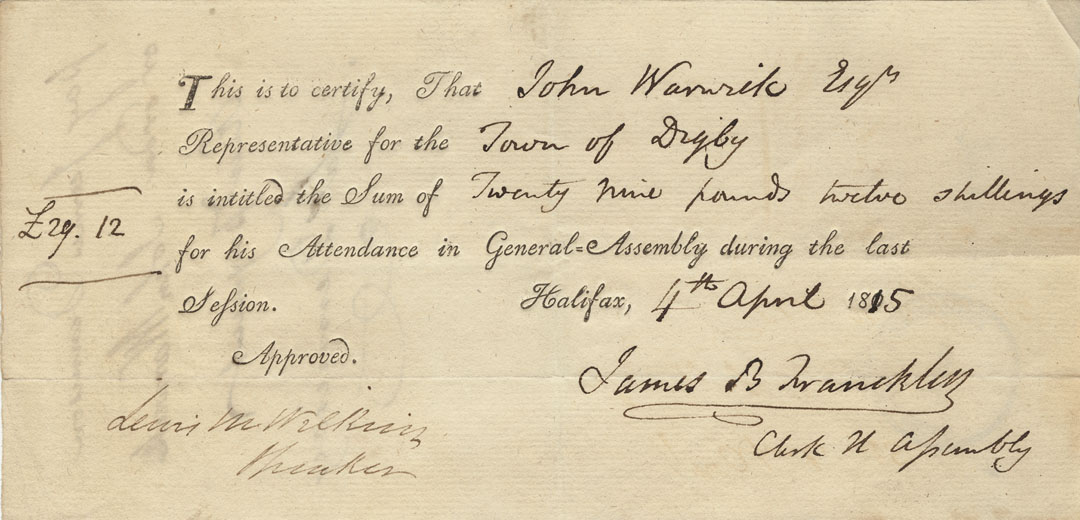 This is to certify, That John Warwick Esqr
Representative for the Town of Digby
is intitled the Sum of Twenty nine pounds twelve shillings
£29. 12
for his Attendance in General=Assembly during the last
Seſsion. Halifax, 4th April 1815
Approved.
James B Franckklin
Lewis M Wilkins
Speaker
Clerk H Aſsembly